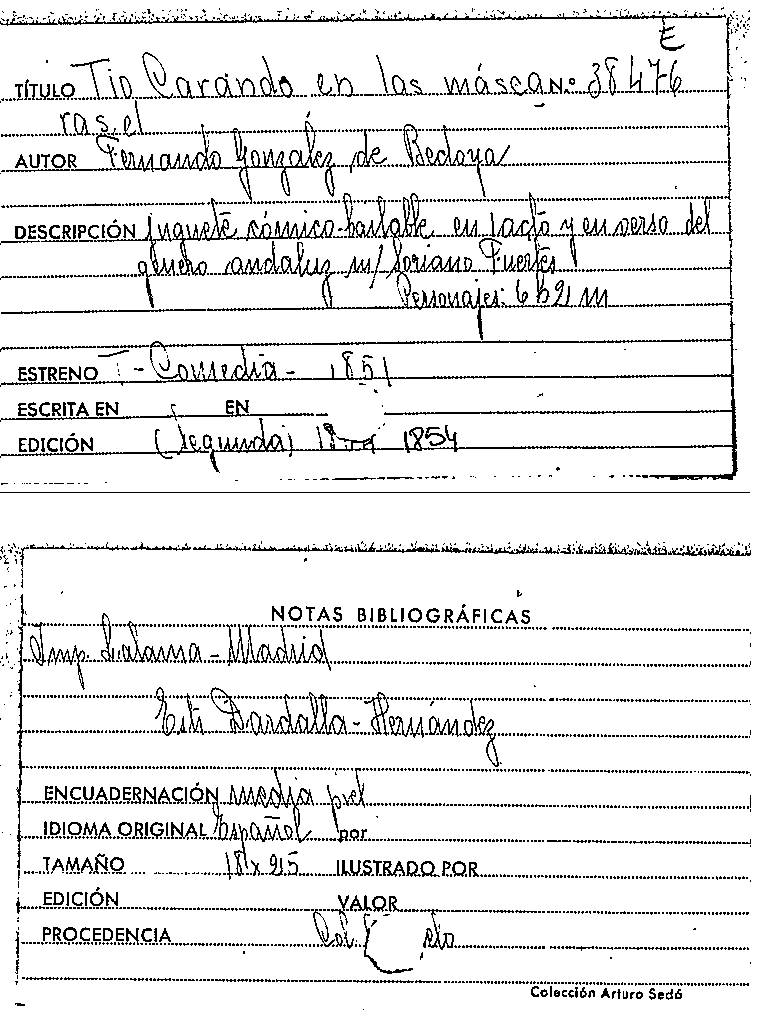 E
TÍTULO Tio Carando en las máscaN.º 38476
ras, el
AUTOR Fernando González de Bedoya
DESCRIPCIÓN Juguete cómico-bailable en 1 acto y en verso del
género andaluz m/ Soriano Fuertes
Personajes: 6 h 2 m
ESTRENO T - Comedia - 1851
ESCRITA EN EN
EDICIÓN (Segunda) 1854
NOTAS BIBLIOGRÁFICAS
Imp. Lalama - Madrid
Est: Dardalla - Hernández
ENCUADERNACIÓN media piel
IDIOMA ORIGINAL Español por
TAMAÑO 18 x 25 ILUSTRADO POR
EDICIÓN VALOR
PROCEDENCIA Col.
Colección Arturo Sedó